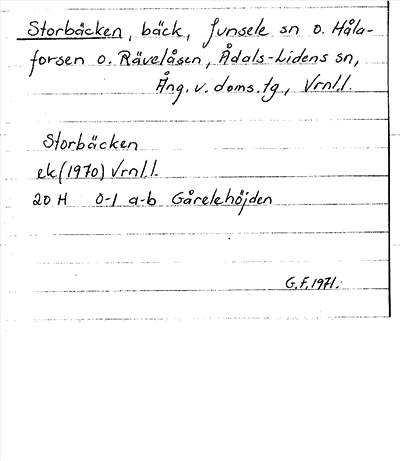 Storbäcken, bäck, Junsele sn o. Håla-
forsen o. Rävelåsen, Ådals-Lidens sn,
Ång. v. doms.tg, Vrnl.l.
Storbäcken
ek (1970) Vrnl.l.
20 H 0-1 a-b Gårelehöjden
G.F. 1971.